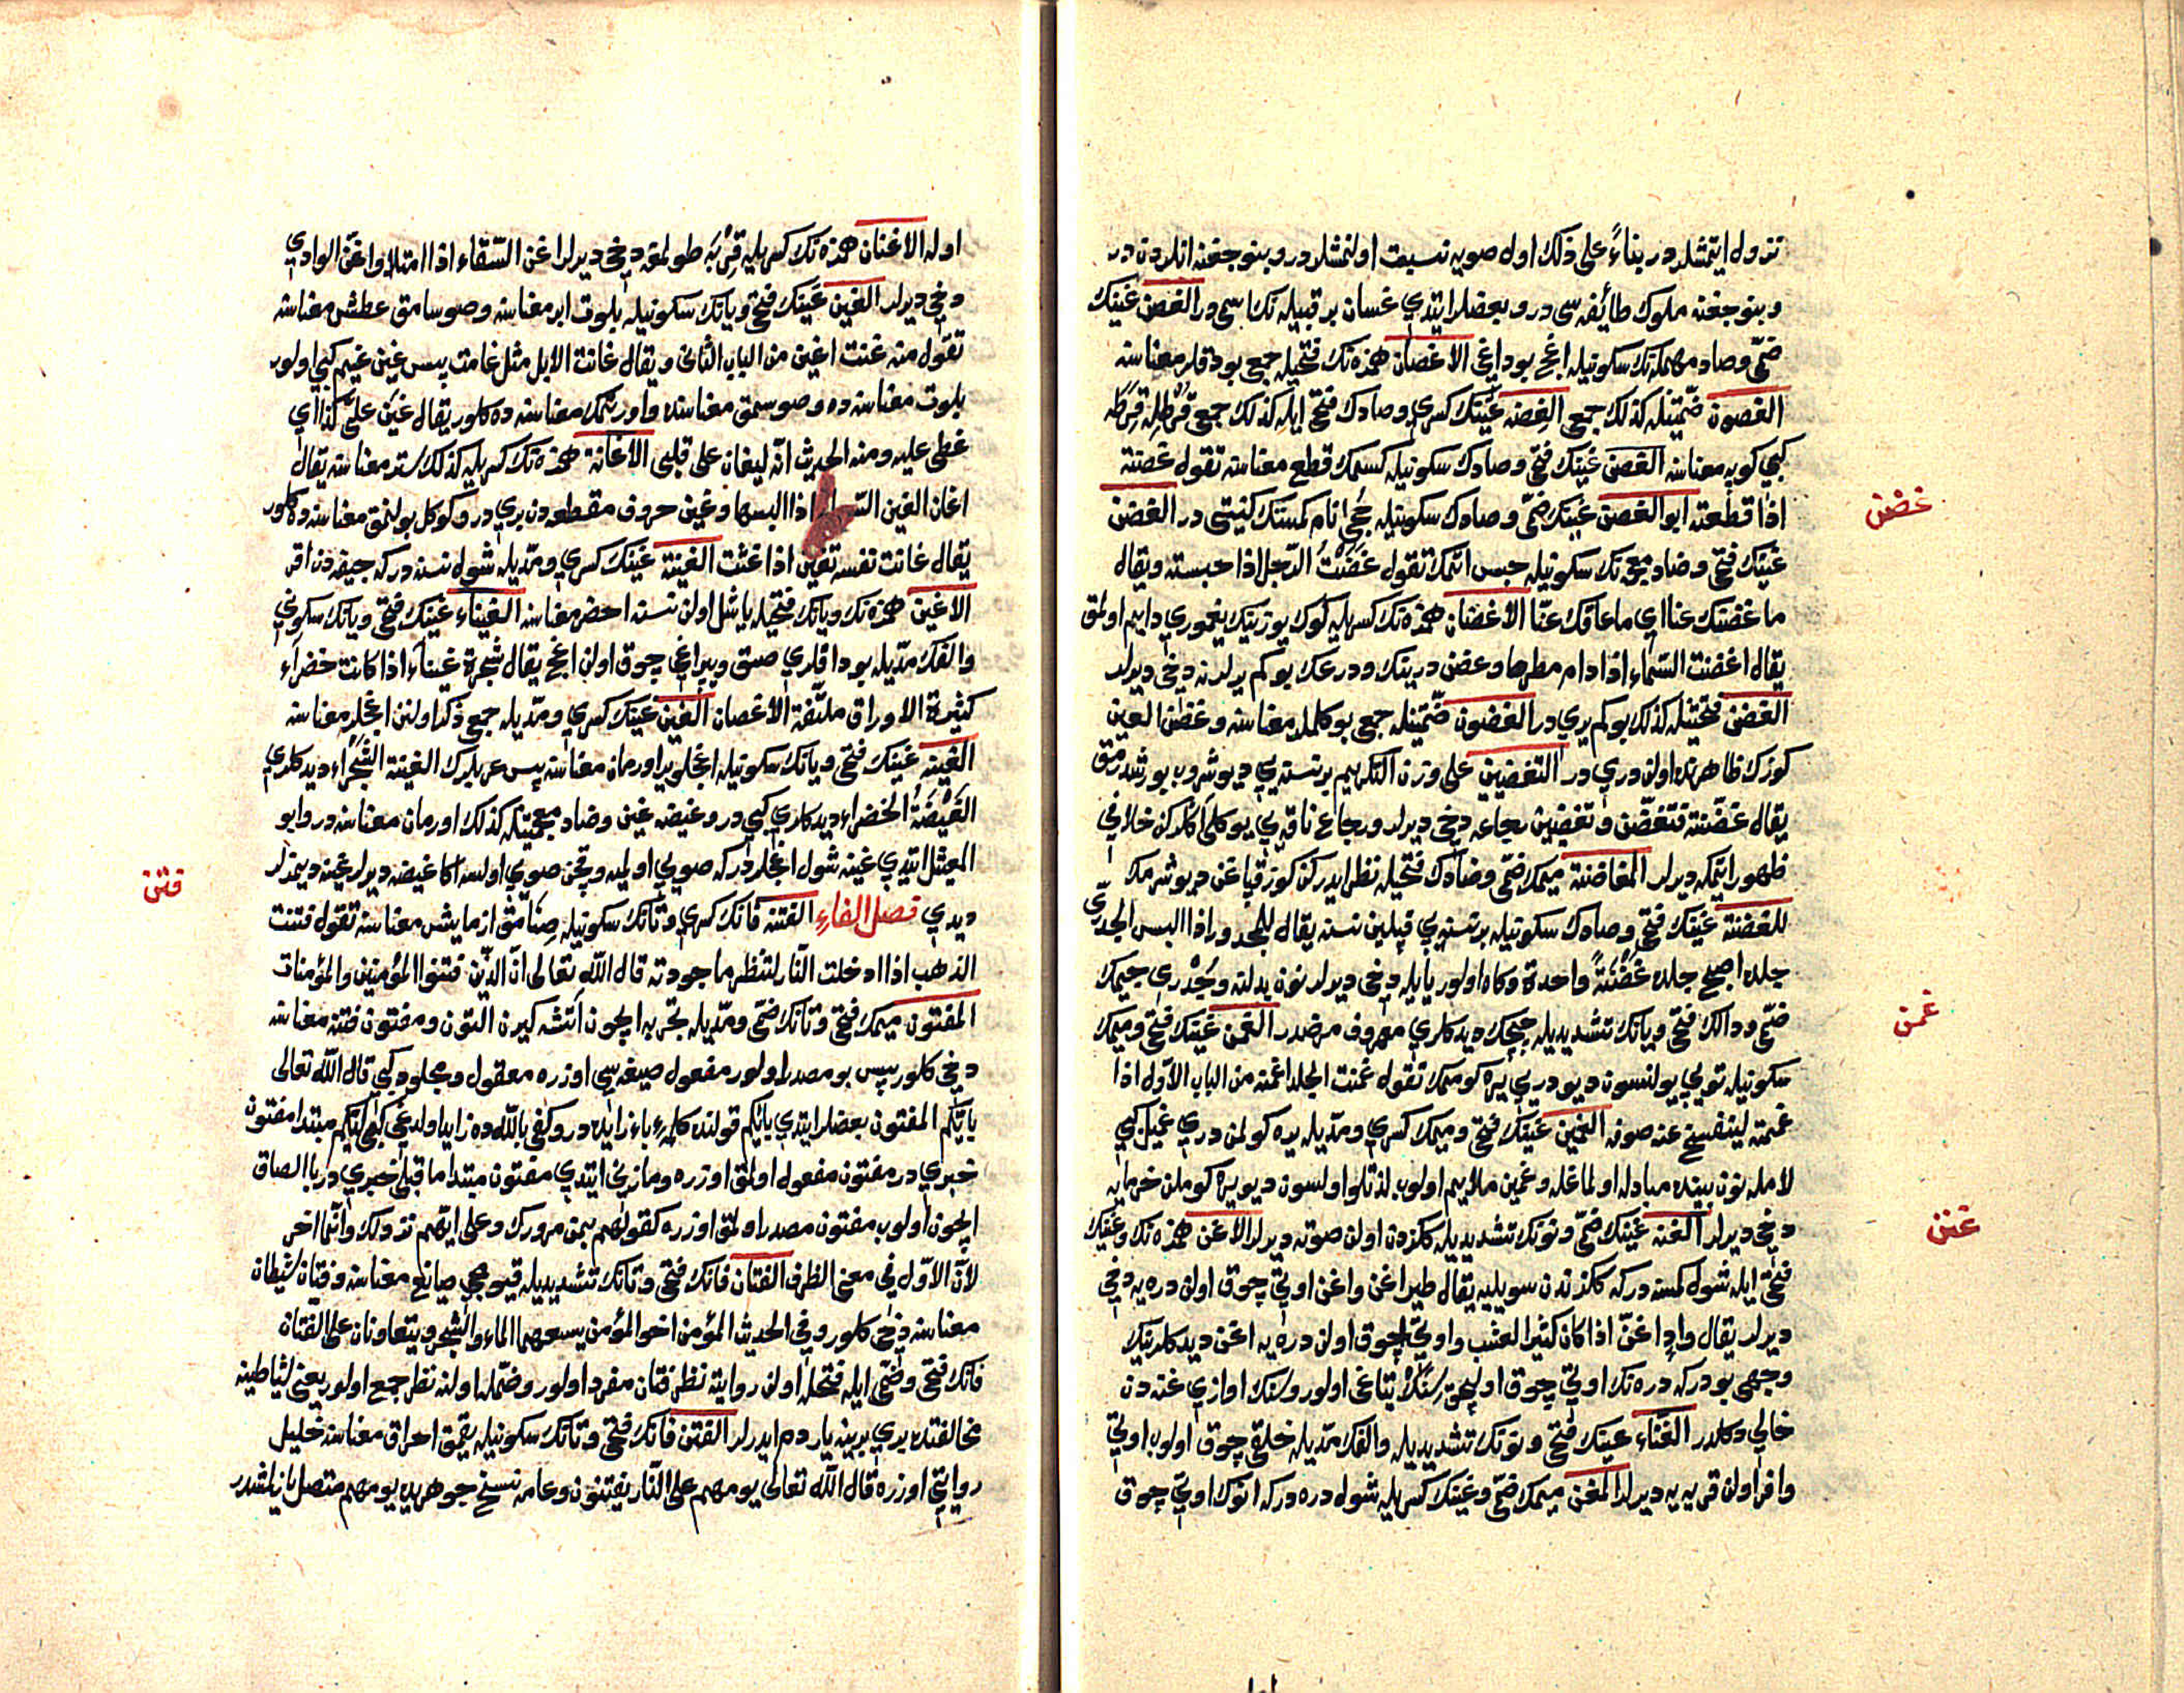 نزول ايتمشلدر بناءً على ذلك اول صويه نسبت اولنمشلدر و بنو جفنه انلردن در
و بنو جفنه ملوك طائفه سى در و بعضلر ايتدي غسان بر قبيله نك اسمى در الغصن غينك
ضمّى وصاد مهمله نك سكونيله اغاج بوداغى الاغصان همزه نك فتحيله جمع بودقلر معناسنه
الغصون ضمّتينله كذلك جمع الغصنه غينك كسرى وصادك فتحى ايله كذلك جمع قُرْطله قِرَطَه
كبى كويه معناسنه الغصن غينك فتحى وصادك سكونيله كسمك قطع معناسنه تقول غصنته
اذا قطعته ابو الغصن غينك ضمّى وصادك سكونيله جحى نام كمسنك كنيتى در الغضن
غينك فتحى وضاد معجمه نك سكونيله حبس اتمك تقول غَضَنْتُ الرّجل اذا حبسته ويقال
ما غضنك عنا اي ما عاقك عنّا الاغضان همزه نك كسريله كوك يوزينك يغمورى دايم اولمق
يقال اغضنت السّماء اذا دام مطرها وغضن درينك ودرعك بوكم يرلرنه دخى ديرلر
الغضن فتحتينله كذلك بوكم يري در الغضون ضمّتينله جمع بوكملر معناسنه وغضن العين
كوزك ظاهرنده اولن دري در التغضين على وزن التكريم بر نسنه يي ديوشروب بورشدرمق
يقال غضّنته فتغضّن وتغضين بجاعه دخى ديرلر وبجاع ناقه يي
ظهور ايتمكه ديرلر المغاضنة ميمك ضمّى وضادك فتحيله نظر ايدركن كوز قپاغن ديوشرمك
للغضنة غينك فتحى وضادك سكونيله بر نسنه يي قپلين نسنه يقال للمجدور اذا البس الجدريّ
جلده اصبح جلده غَضْنَةً واحدة وكاه اولور بايله دخى ديرلر نون بدلنه وجُدْري جيمك
ضمّى ودالك فتحى ويانك تشديديله چيچك ديدكلري معروف مرضدر الغمن غينك فتحى وميمك
سكونيله تويى يولنسون ديو دريي يره كوممك تقول غمنت الجلد اغمنه من الباب الاوّل اذا
غممته لينفسخ عنه صوفه الغمين غينك فتحى وميمك كسرى ومدّيله يره كولمن دري غميل كبى
لامله نون بيننده مبادله اولماغله وغمين ملايم اولوب لذتلو اولسون ديو يره كوملن خرمايه
دخى ديرلر الغنه غينك ضمّى ونونك تشديديله ككزدن اولن صوته ديرلر الاغن همزه نك وغينك
فتحى ايله شول كمسنه در كه ككزندن سويليه يقال طير اغن واغن اوتى چوق اولن دره يه دخى
ديرلر يقال وادٍ اغنّ اذا كان كثير العشب و اوتى چوق اولن دره يه اغن ديدكلرينك
وجهى بودر كه دره نك اوتى چوق اوليجق سِنَك يتاغى اولور وسنك اوازي غنه دن
خالي دكلدر الغنّاء غينك فتحى ونونك تشديديله والفك مدّيله خلقى چوق اولوب اوتى
وافر اولن قريه يه ديرلر المغن ميمك ضمّى وغينك كسريله شول دره در كه انوك اوتى چوق
غضن
غمن
غنن
اوله الاغنان همزه نك كسريله قِرْبَه طولمغه دخى ديرلر اغن السّقاء اذا امتلا واغنّ الوادي
دخى ديرلر الغين غينك فتحى ويانك سكونيله بلوت ابر معناسنه وصوسامق عطش معناسنه
تقول منه غنت اغين من الباب الثانى ويقال غانت الابل مثل غامت پس غين غيم كبى اولور
بلوت معناسنده وصوسمق معناسنده واورتمك معناسنده كلور يقال غين على كذا اي
غطى عليه ومنه الحديث انّه ليغان على قلبى الاغانة همزه نك كسريله كذلك ستر معناسنه يقال
اغان الغين السّماء اذا البسها وغين حروف مقطعه دن بري در و كوكل بولنمق معناسنه ده كلور
يقال غانت نفسه تغين اذا غثت الغينة غينك كسري ومدّيله شول نسنه در كه جيفه دن اقر
الاغين همزه نك ويانك فتحيله ياشل اولن نسنه اخضر معناسنه الغيناء غينك فتحى ويانك سكونى
والفك مدّيله بوداقلري صق ويپراغى چوق اولن اغاج يقال شجرة غيناء اذا كانت خضراء
كثيرة الاوراق ملتفّة الاغصان الغين غينك كسري ومدّيله جمع ذكر اولنن اغاجلر معناسنه
الغينه غينك فتحى ويانك سكونيله اغاجلو ير اورمان معناسنه پس عربلرك الغينة الشّجراء ديدكلري
الغَيْضَةُ الخضراء ديدكلري كبى در وغيضه غين وضاد معجمتينله كذلك اورمان معناسنه در وابو
العميثل ايتدي غينه شول اغاجلردر كه صويي اولميه وقچن صويي اولسه اكا غيضه ديرلر غينه ديمزلر
ديدي فصل الفاء الفتنه فانك كسري وتانك سكونيله صِنَامَق ازمايش معناسنه تقول فتنت
الذهب اذا ادخلت النّار لتنظر ما جودته قال اللّه تعالى انّ الّذين فتنوا المؤمنين والمؤمنات
المفتون ميمك فتحى وتانك ضمّى ومدّيله تجربه ايچون آتشه كيرن التون ومفتون فتنه معناسنه
دخى كلور پس بو مصدر اولور مفعول صيغه سى اوزره معقول ومجلود كبى قال اللّه تعالى
بايّكم المفتون بعضلر ايتدي بايّكم قولنده كلمه‌ء باء زايده در وكفى باللّه ده زايد اولدغى كبى ايّكم مبتدا مفتون
خبري در مفتون مفعول اولمق اوزره ومازنى ايتدي مفتون مبتدا ما قبلى خبري در با الصاق
ايچون اولوب مفتون مصدر اولمق اوزره كقولهم بمن مرورك وعلى ايّهم نزولك وانّما اخر
لانّ الاوّل فى معنى الظرف الفتان فانك فتحى وتانك تشديديله قيومجى صايغ معناسنه وفتان شيطان
معناسنه دخى كلور وفى الحديث المؤمن اخو المؤمن يسعهما الماء والشّجر ويتعاونان على الفتّان
فانك فتحى وضمّى ايله فتحله اولن روايته نظر فتان مفرد اولور وضمّله اولنه نظر جمع اولور يعنى شياطينه
مخالفتده بري برينه ياردم ايدرلر الفتن فانك فتحى وتانك سكونيله يقمق احراق معناسنه خليل
روايتى اوزره قال اللّه تعالى يوم هم على النّار يفتنون وعامه نسخ جوهريده يومهم متصل يازلمشدر
فتن